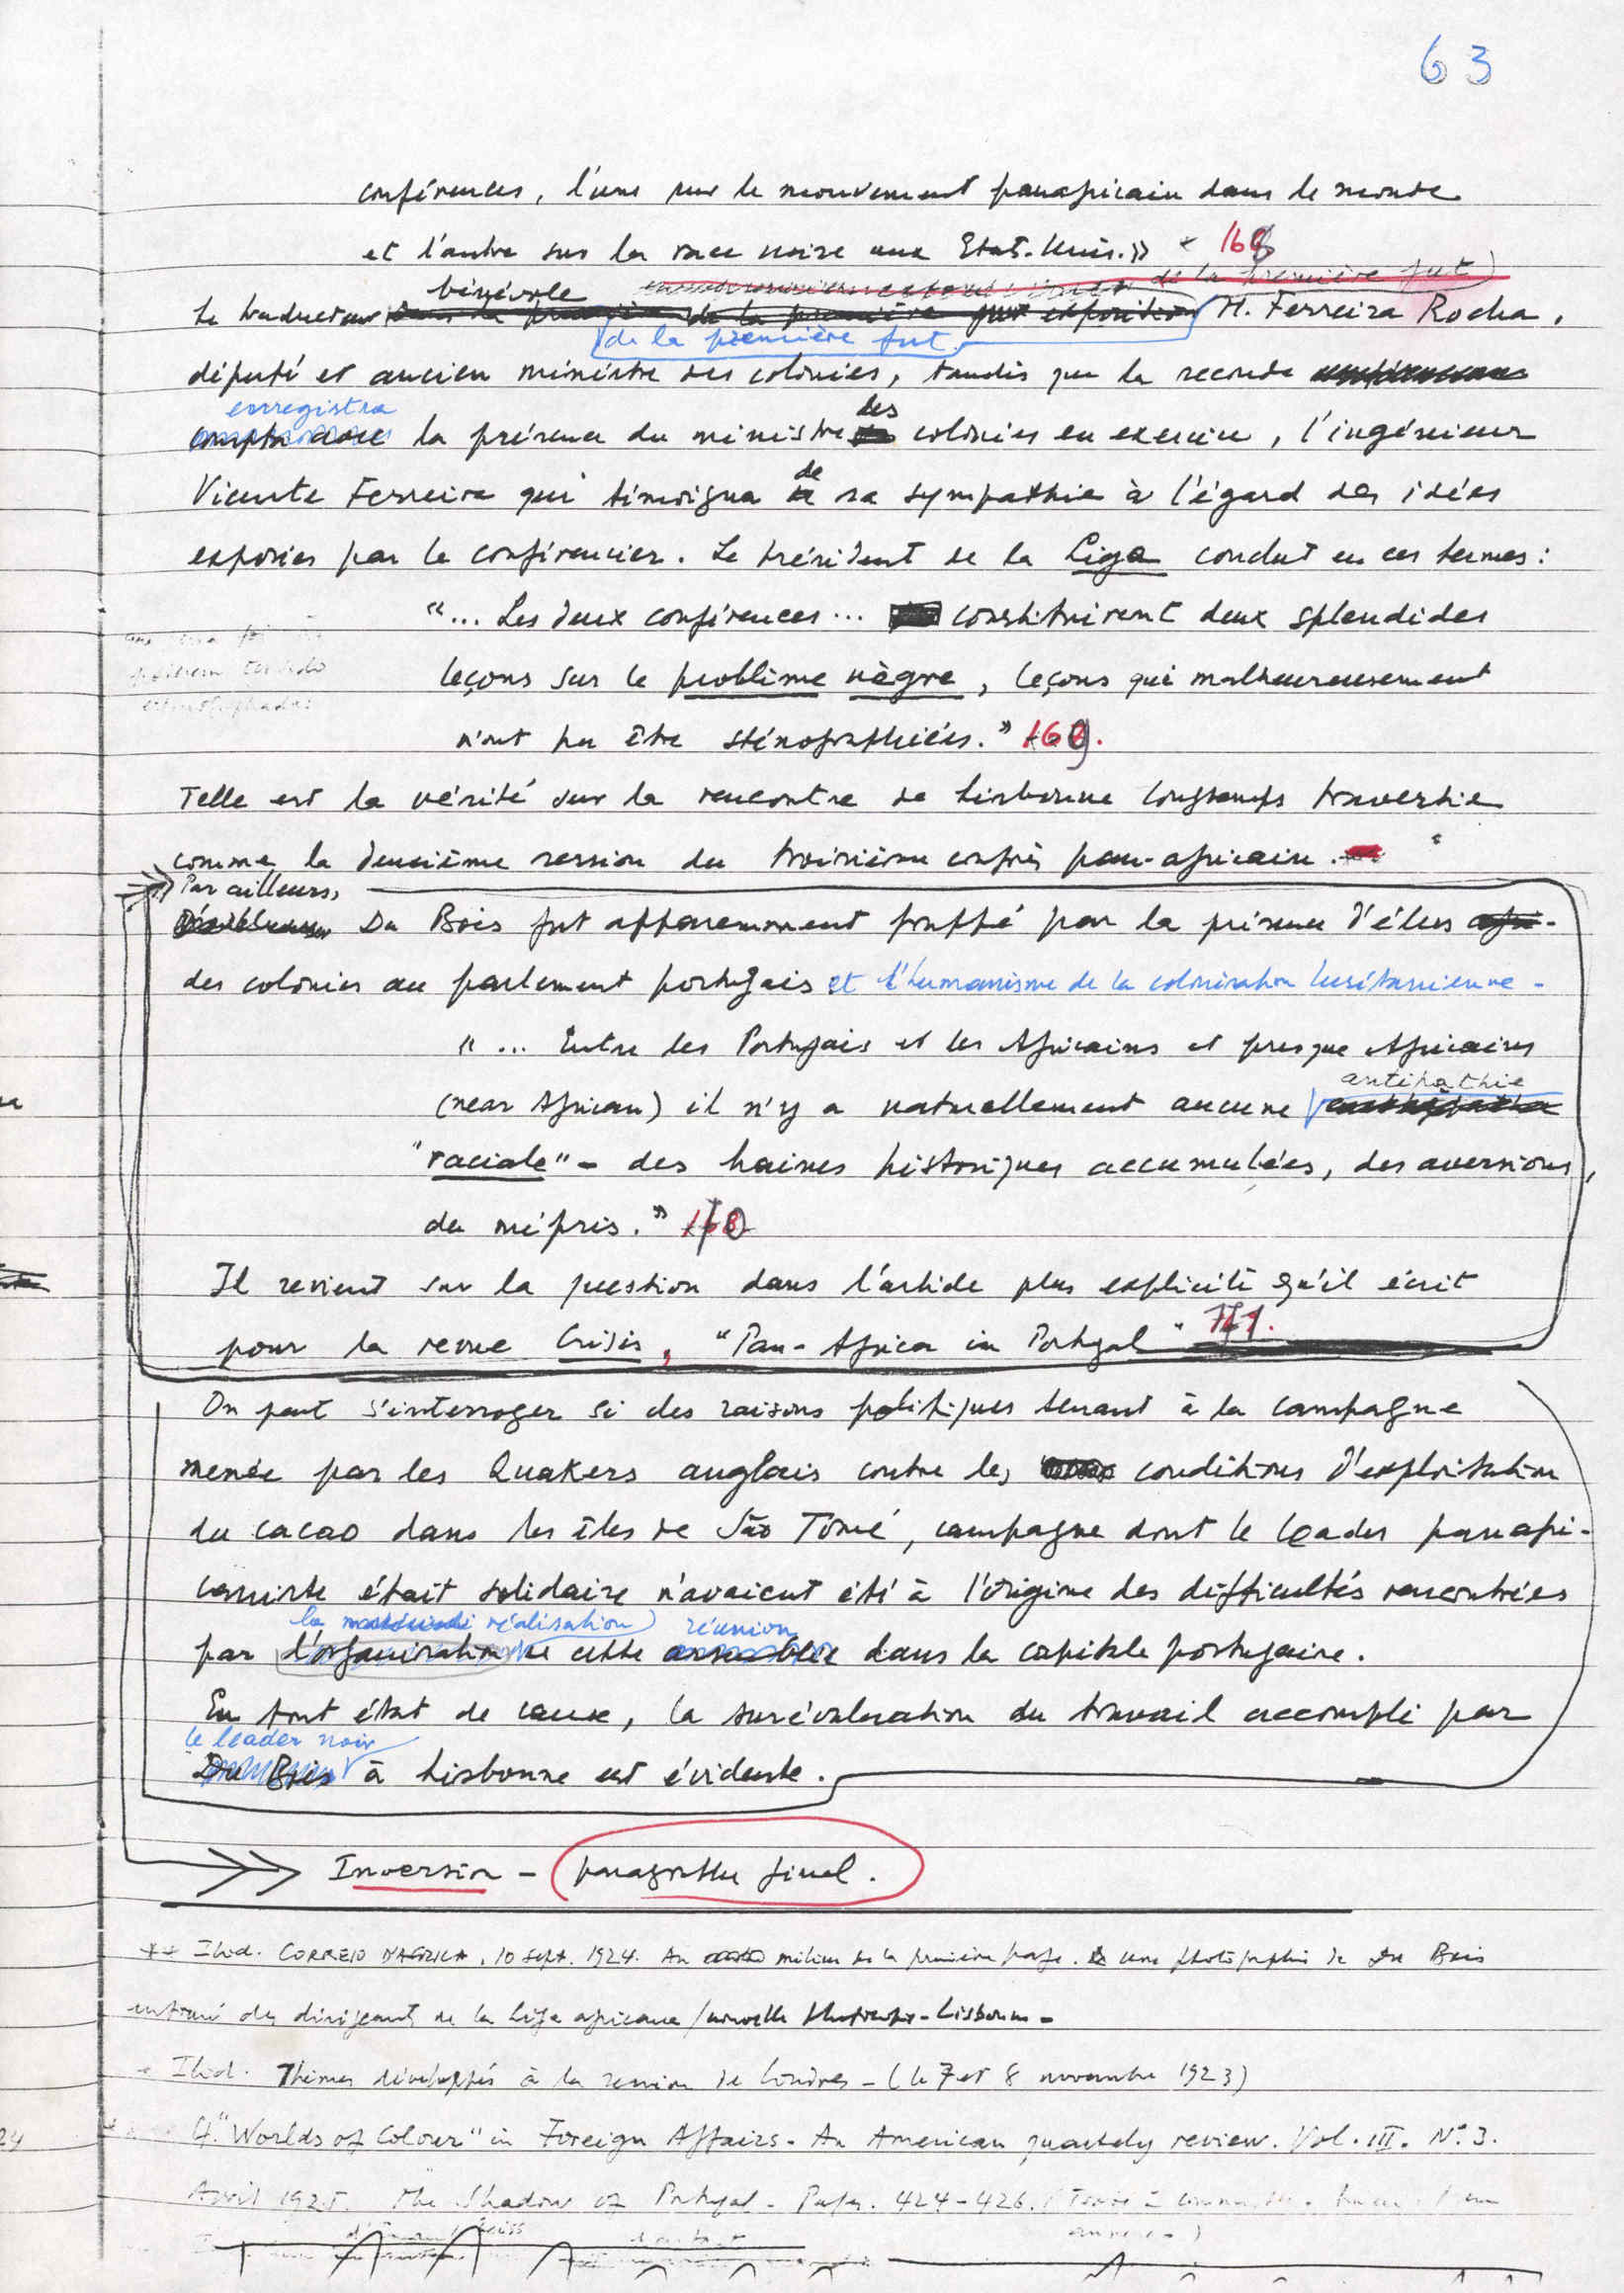 63
conférences, l'une sur le mouvement panafricain dans le monde
et l'autre sur la race noire aux Etats-Unis. » * 168
de la première fut
bénévole
Le traducteur de la première fut M. Ferreira Rocha,
député et ancien ministre des colonies, tandis que la seconde
enregistra
la présence du ministre des colonies en exercice, l'ingénieur
Vicente Ferreira qui témoigna de sa sympathie à l'égard des idées
exposées par le conférencier. Le président de la Liga conclut en ces termes :
"... Les deux conférences ... constituirent deux splendides
leçons sur le problème nègre, leçons qui malheureusement
n'ont pu être sténographiées. " 169.
Telle est la vérité sur la rencontre de Lisbonne longtemps travestie
comme la deuxième session du troisième congrès pan-africain.
Par ailleurs,
Du Bois fut apparemment frappé par la présence d'élus
des colonies au parlement portugais et l'humanisme de la colonisation lusitanienne -
" ... Entre les Portugais et les Africains et presque Africains
antipathie
(near African) il n'y a naturellement aucune
"raciale" - des haines historiques accumulées, des aversions,
du mépris. " 170
Il revient sur la question dans l'article plus explicite qu'il écrit
pour la revue Crisis, "Pan-Africa in Portugal" 171.
On peut s'interroger si des raisons politiques tenant à la campagne
menée par les Quakers anglais contre les conditions d'exploitation
du cacao dans les îles de São Tomé, campagne dont le leader panafri-
caniste était solidaire n'avaient été à l'origine des difficultés rencontrées
la réalisation réunion
par l'organisation de cette assemblée dans la capitale portugaise.
En tout état de cause, la surévaluation du travail accompli par
le leader noir
Du Bois à Lisbonne est évidente.
Inversion - paragraphe final.
** Ibid. CORREIO D'AFRICA, 10 sept. 1924. Au milieu de la première page. une photographie de Du Bois
entouré des dirigeants de la Liga africana / nouvelle - Lisbonne -
* Ibid. Thèmes développés à la session de Londres - (le 7 et 8 novembre 1923)
Cf. "Worlds of Colour" in Foreign Affairs - An American quarterly review. Vol. III. N° 3.
Avril 1925. The Shadow of Portugal - Pages. 424-426.